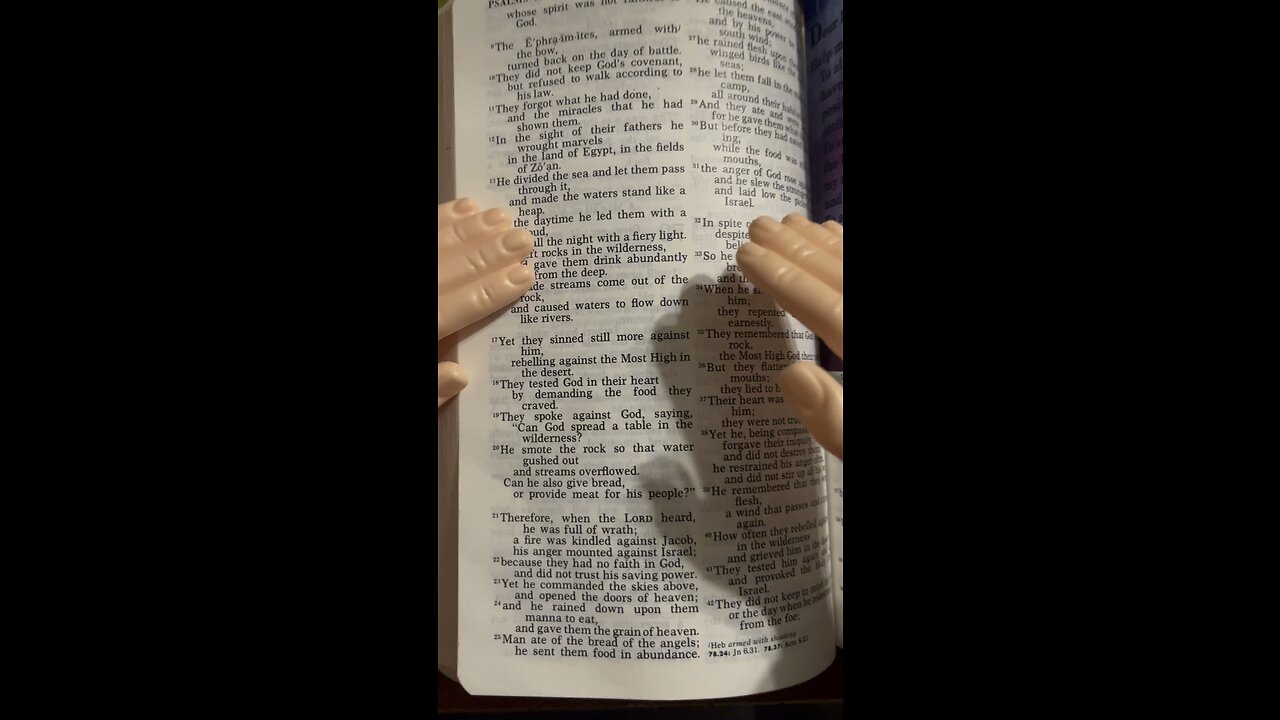 PSALMS
whose spirit was not faithful to
God.
⁹The Ē′phra·im·ites, armed with
the bow,
turned back on the day of battle.
¹⁰They did not keep God's covenant,
but refused to walk according to
his law.
¹¹They forgot what he had done,
and the miracles that he had
shown them.
¹²In the sight of their fathers he
wrought marvels
in the land of Egypt, in the fields
of Zō′an.
¹³He divided the sea and let them pass
through it,
and made the waters stand like a
heap.
the daytime he led them with a
all the night with a fiery light.
rocks in the wilderness,
gave them drink abundantly
from the deep.
streams come out of the
rock,
and caused waters to flow down
like rivers.
¹⁷Yet they sinned still more against
him,
rebelling against the Most High in
the desert.
¹⁸They tested God in their heart
by demanding the food they
craved.
¹⁹They spoke against God, saying,
"Can God spread a table in the
wilderness?
²⁰He smote the rock so that water
gushed out
and streams overflowed.
Can he also give bread,
or provide meat for his people?"
²¹Therefore, when the LORD heard,
he was full of wrath;
a fire was kindled against Jacob,
his anger mounted against Israel;
²²because they had no faith in God,
and did not trust his saving power.
²³Yet he commanded the skies above,
and opened the doors of heaven;
²⁴and he rained down upon them
manna to eat,
and gave them the grain of heaven.
²⁵Man ate of the bread of the angels;
he sent them food in abundance.
He caused the east
the heavens,
and by his power he
south wind;
²⁷he rained flesh upon
winged birds like the
seas;
²⁸he let them fall in the
camp,
all around their
²⁹And they ate and were
for he gave them what
³⁰But before they had
ing,
while the food was
mouths,
³¹the anger of God rose
and he slew the
and laid low the
Israel.
³²In spite
despite
³³So he
and
³⁴When he
him;
they repented
earnestly.
³⁵They remembered that God
rock,
the Most High God their
³⁶But they
mouths;
they lied to
³⁷Their heart was
him;
they were not
³⁸Yet he, being
forgave their iniquity
and did not destroy them;
he restrained his anger
and did not stir up all
³⁹He remembered that they
flesh,
a wind that passes and
again.
⁴⁰How often they rebelled
in the wilderness
and grieved him in the
⁴¹They tested him again
and provoked the Holy
Israel.
⁴²They did not keep in mind
or the day when he
from the foe;
Heb armed with shooting
78.24: Jn 6.31. 78.37: Acts